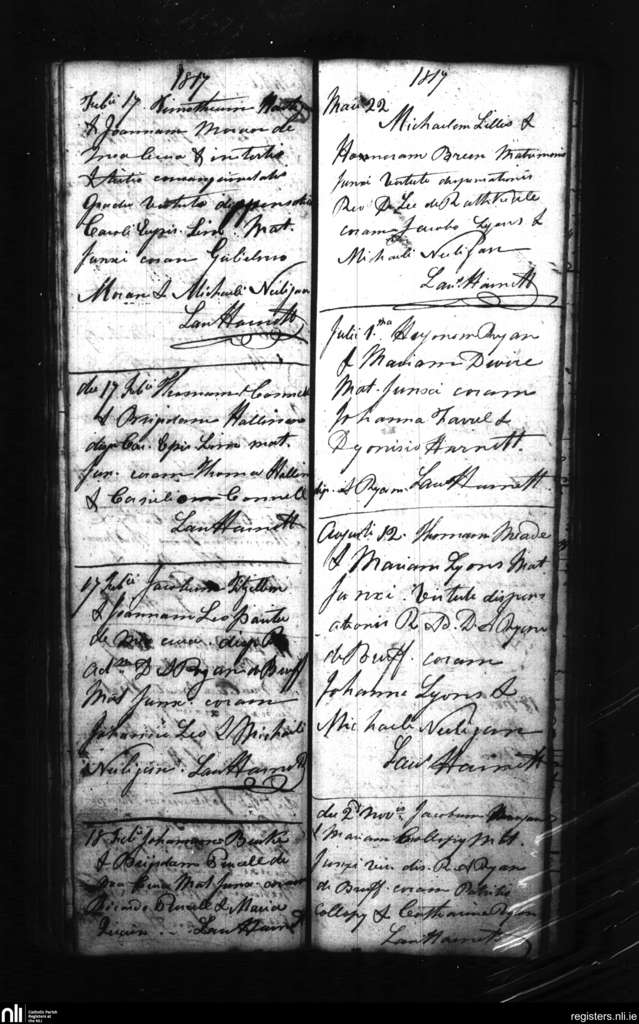 1817
Feb. 17 Timotheum
& Joannam Moran de
mea cura & in tertio
& tertio consanguinitatis
Gradu virtute dispensationis
Caroli Episc. Lim. Mat.
Junxi coram Gulielmo
Moran & Michaeli Nuligan
Law Harnett
die 17 Feb. Thomam Connell
& Brigidam Hallinan
disp. Car. Epis Lim mat.
Jun. coram Thoma Hallin
& Connell
Law Harnett
17 Feb. Jacobum
& Joannam Leo
de mea cura disp. R.
Ad. D. D. Ryan de Bruff
Mat Junx. coram
Johanne Leo & Michaeli
Nuligan. Law Harnett
18 Feb. Johannem Burke
& Brigidam Purcell de
mea Cura Mat Junx. coram
Ricardo Purcell & Maria
Law Harnett
1817
Maii 22
Michaelem Lillis &
Honoram Breen Matrimonio
Junxi Virtute dispensationis
Rev D. Lee de Rathkeale
coram Jacobo Lyons &
Michaeli Nuligan
Law. Harnett
Julii 1. Ryan
& Mariam Dwire
Mat. Junxi coram
Johanna &
Dyonisio Harnett.
dis. D Ryan. Law Harnett.
Augusti 12. Thomam Meade
& Mariam Lyons Mat
Junxi. Virtute dispens
ationis R. D. D. Ryan
de Bruff. coram
Johanne Lyons &
Michaeli Nuligan
Law Harnett
die 2d Nov. Jacobum
& Mariam Collopy Mat.
Junxi dis. R. D Ryan
de Bruff. coram Patritio
Collopy & Catharina Ryan
Law Harnett
nli
Catholic Parish
Registers at
the NLI
registers.nli.ie